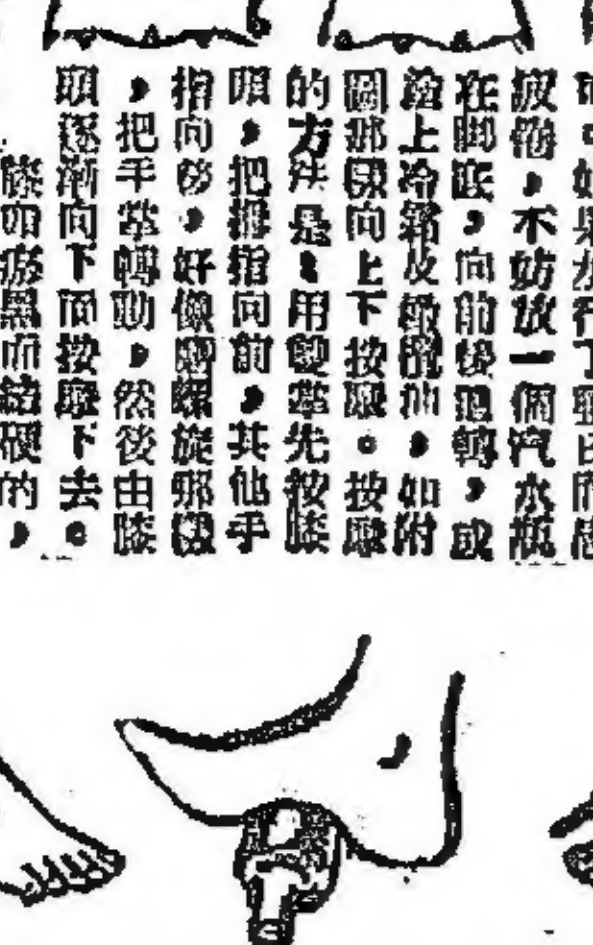 如果為行了
疲倦，不妨放一個汽水瓶
在脚底，向前後退轉，或
塗上冷霜及橄欖油，如附
圖那樣向上下按摩。按摩
的方法是：用雙掌先按膝
頭，把拇指向前，其他手
指向後，好像螺旋那樣
，把手掌轉動，然後由膝
頭逐漸向下面按摩下去。
膝如瘀黑而結硬的，